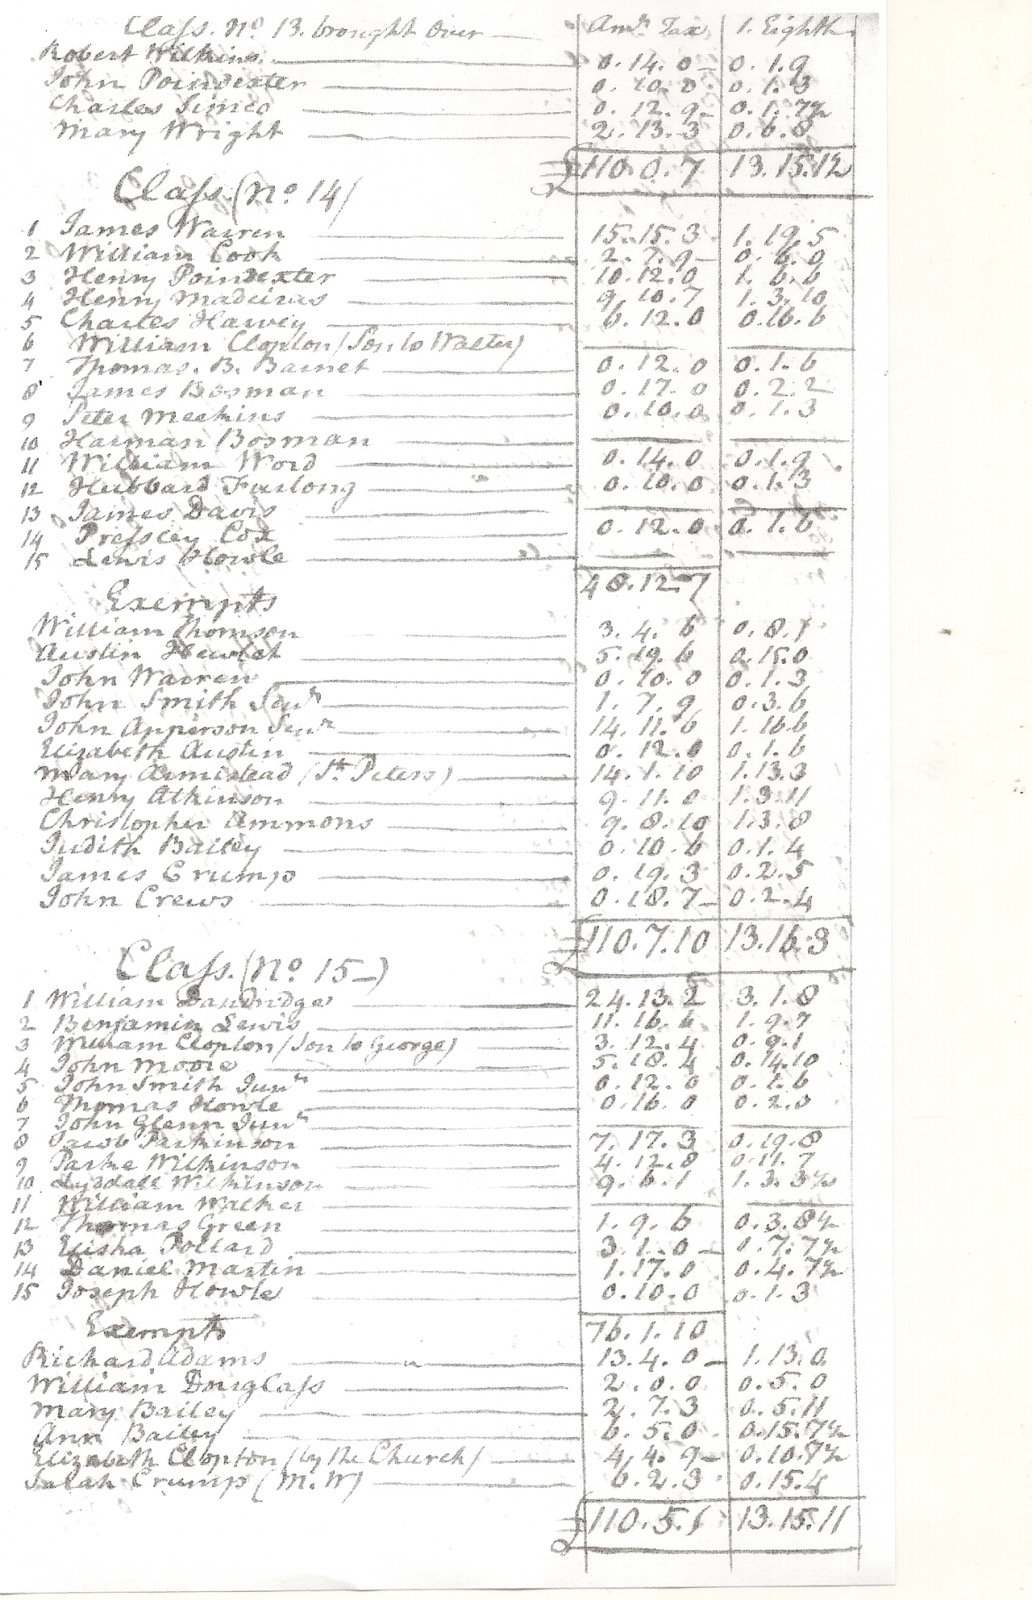 Class. No. 13. brought Over Amt. Tax 1. Eighth
Robert Wilkins 0.14.0 0.1.9
John Poindexter 0.10.0 0.1.3
Charles Simco 0.12.9 0.1.7½
Mary Wright 2.13.3 0.6.8
£110.0.7 13.15.1½
Class. (No. 14)
1 James Warren 15.15.3 1.19.5
2 William Cook 2.7.9 0.6.0
3 Henry Poindexter 10.12.0 1.6.6
4 Henry Madeiras 9.10.7 1.3.10
5 Charles Harvey 6.12.0 0.16.6
6 William Clopton (Son to Walter)
7 Thomas. B. Barnet 0.12.0 0.1.6
8 James Bosman 0.17.0 0.2.2
9 Peter Meekins 0.10.0 0.1.3
10 Harman Bosman
11 William Word 0.14.0 0.1.9
12 Hubbard Furlong 0.10.0 0.1.3
13 James Davis
14 Pressley Cox 0.12.0 0.1.6
15 Lewis Howle
48.12.7
Exempts
William Thomson 3.4.6 0.8.1
Austin Hewlet 5.19.6 0.15.0
John Warren 0.10.0 0.1.3
John Smith Senr 1.7.9 0.3.6
John Apperson Senr 14.11.6 1.16.6
Elizabeth Austin 0.12.0 0.1.6
Mary Armistead (St. Peters) 14.1.10 1.13.3
Henry Atkinson 9.11.0 1.3.11
Christopher Ammons 9.8.10 1.3.8
Judith Bailey 0.10.6 0.1.4
James Crump 0.19.3 0.2.5
John Crews 0.18.7 0.2.4
£110.7.10 13.16.3
Class. (No. 15)
1 William Dandridge 24.13.2 3.1.8
2 Benjamin Lewis 11.16.6 1.9.7
3 William Clopton (Son to George) 3.12.4 0.9.1
4 John Moore 5.18.4 0.14.10
5 John Smith Junr 0.12.0 0.1.6
6 Thomas Howle 0.16.0 0.2.0
7 John Glenn Junr
8 Jacob Parkinson 7.17.3 0.19.8
9 Parke Wilkinson 4.12.8 0.11.7
10 Lysdall Wilkinson 9.6.1 1.3.3½
11 William Walker
12 Thomas Green 1.9.6 0.3.8½
13 Elisha Pollard 3.1.0 0.7.7½
14 Daniel Martin 1.17.0 0.4.7½
15 Joseph Howle 0.10.0 0.1.3
76.1.10
Exempts
Richard Adams 13.4.0 1.13.0
William Douglass 2.0.0 0.5.0
Mary Bailey 2.7.3 0.5.11
Ann Bailey 6.5.0 0.15.7½
Elizabeth Clopton (by the Church) 4.4.9 0.10.7½
Sarah Crump (M.W) 6.2.3 0.15.4
£110.5.1 13.15.11